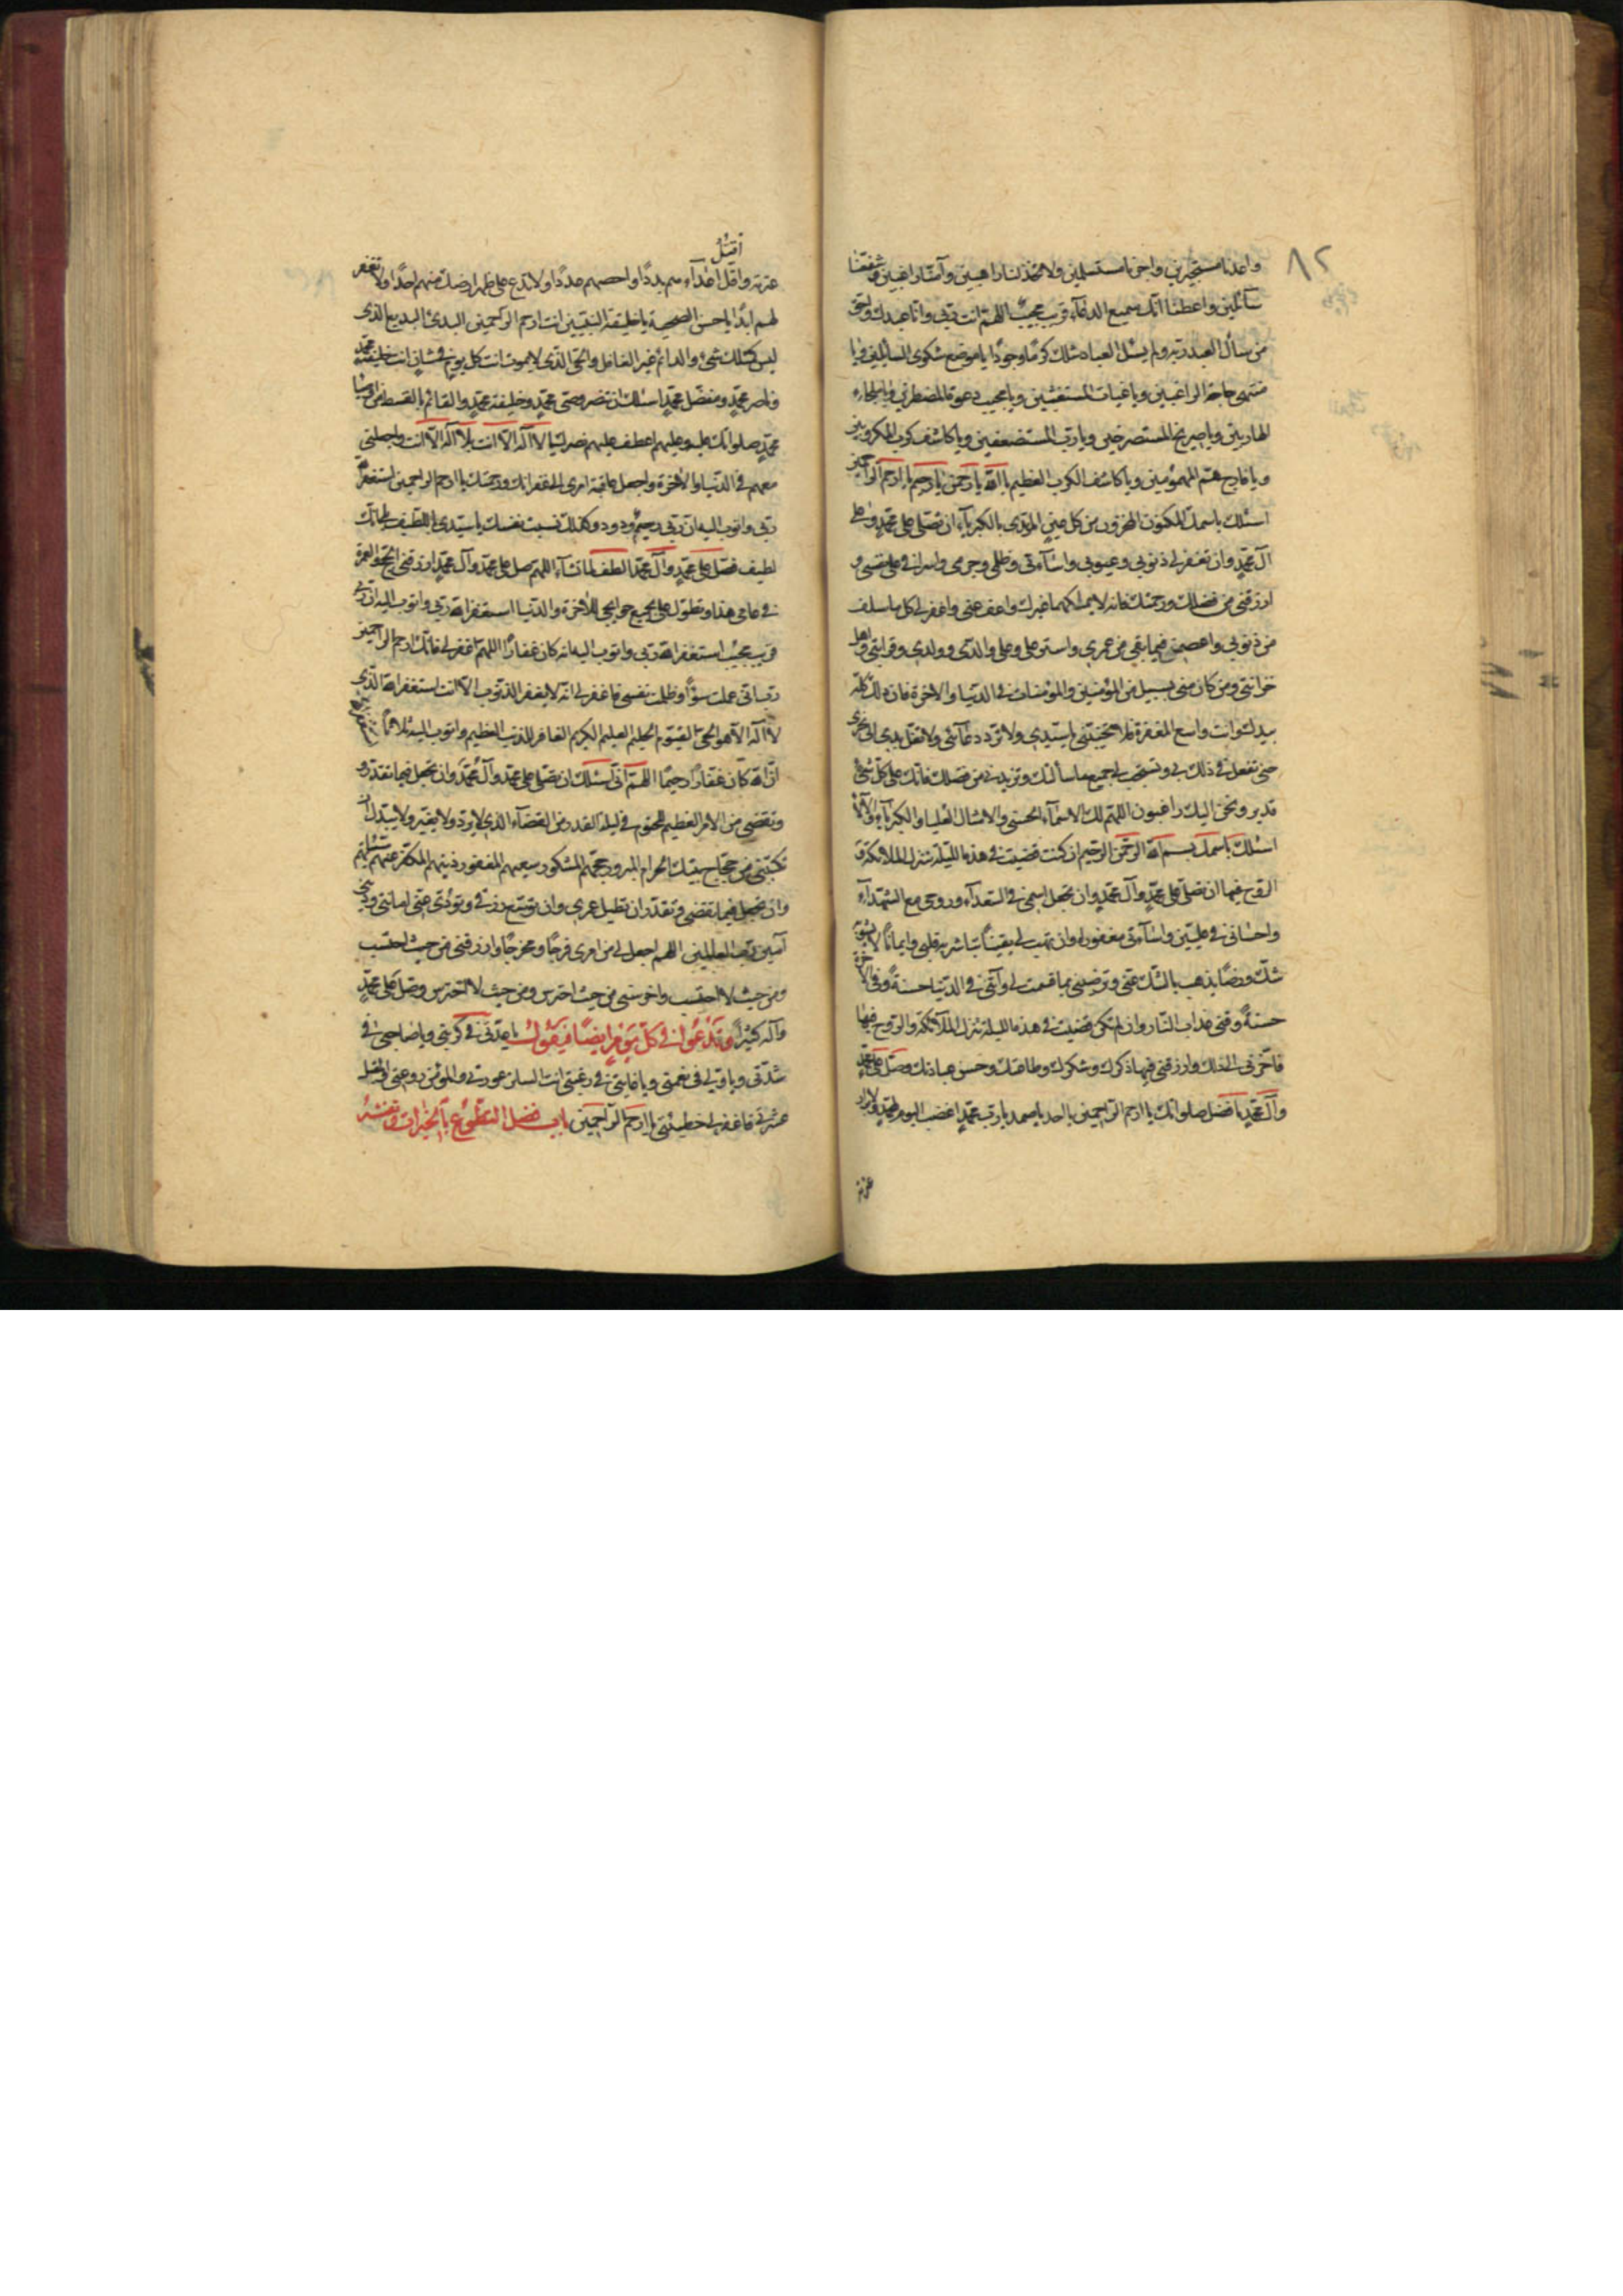 ٨٢
واعدنا مستجيرين واجرنا مستسلمين ولا تخذلنا راهبين وآمنا راغبين وشفعنا
سائلين واعطنا انّك سميع الدعاء قريب مجيب اللهم انت ربي وانا عبدك واحق
من سأل العبد ربه ولم يسئل العباد مثلك كرمًا وجودًا يا موضع شكوى السائلين ويا
منتهى حاجة الراغبين ويا غياث المستغيثين ويا مجيب دعوة المضطرين ويا ملجاء
الهاربين ويا صريخ المستصرخين ويا ربّ المستضعفين ويا كاشف كرب المكروبين
ويا فارج همّ المهمومين ويا كاشف الكرب العظيم يا الله يا رحمن يا رحيم يا ارحم الراحمين
اسئلك باسمك المكنون المخزون من كل عين المرتدى بالكبرياء ان تصلى على محمد وعلى
آل محمدٍ وان تغفر لي ذنوبي وعيوبي واساءتى وظلمي وجرمى واسرافي على نفسى و
ارزقنى من فضلك ورحمتك فانه لا يملكهما غيرك واعف عنى واغفر لى كل ما سلف
من ذنوبي واعصمنى فيما بقى من عمرى واستر على وعلى والدى وولدى وقرابتى واهل
حزانتى ومن كان منى بسبيل من المؤمنين والمؤمنات فى الدنيا والاخرة فان ذلك كله
بيدك وانت واسع المغفرة فلا تخيبنى يا سيدى ولا تردد دعائى ولا تغل يدى الى نحرى
حتى تفعل ذلك بى وتستجيب لى جميع ما سألتك وتزيدنى من فضلك فانك على كل شئ
قدير ونحن اليك راغبون اللهم لك الاسماء الحسنى والامثال العليا والكبرياء والآلاء
اسئلك باسمك بسم الله الرحمن الرحيم ان كنت قضيت فى هذه الليلة تنزل الملائكة و
الروح فيها ان تصلى على محمدٍ وآل محمدٍ وان تجعل اسمى فى السعداء وروحى مع الشهداء
واحسانى فى عليّين واساءتى مغفورة وان تهب لى يقينًا تباشر به قلبى وايمانًا لا يشوبه
شكّ ورضًا يذهب بالشك عنى وترضينى بما قسمت لى وآتنى فى الدنيا حسنة وفى الآخرة
حسنة وقنى عذاب النار وان لم تكن قضيت فى هذه الليلة تنزل الملآئكة والروح فيها
فاخرنى الى ذلك وارزقنى فيها ذكرك وشكرك وطاعتك وحسن عبادتك وصل على محمد
وآل محمدٍ بافضل صلواتك يا ارحم الراحمين يا احد يا صمد يا رب محمدٍ اغضب اليوم لمحمدٍ ولابرار
عترته
اقتل
عترته واقتل اعداءهم بددًا واحصهم عددًا ولا تدع على ظهر ارضك منهم احدًا ولا تغفر
لهم ابدًا يا حسن الصحبة يا خليفة النبيين انت ارحم الراحمين البدئ البديع الذى
ليس كمثلك شئ والدائم غير الغافل والحى الذى لا يموت انت كل يوم فى شان انت خليفة محمد
وناصر محمدٍ ومفضّل محمدٍ اسئلك ان تنصر وصى محمدٍ وخليفة محمدٍ والقائم بالقسط من اوصياء
محمدٍ صلواتك عليه وعليهم اعطف عليهم نصرك يا لا اله الا انت بلا اله الا انت واجعلنى
معهم فى الدنيا والاخرة واجعل عاقبة امرى الى غفرانك ورحمتك يا ارحم الراحمين استغفر الله
ربى واتوب اليه ان ربى رحيم ودود وكذلك نسبت نفسك يا سيدى باللطيف بلى انك
لطيف فصل على محمدٍ وآل محمدٍ والطف لما تشاء اللهم صل على محمد وآل محمدٍ وارزقنى الحج والعمرة
فى عامى هذا وتطول على بجميع حوايجى للاخرة والدنيا استغفر الله ربى واتوب اليه ان ربى
قريب مجيب استغفر الله ربى واتوب اليه انه كان غفارًا اللهم اغفر لى فانك ارحم الراحمين
رب انى عملت سوءًا وظلمت نفسى فاغفر لى انه لا يغفر الذنوب الا انت استغفر الله الذى
لا اله الا هو الحى القيوم الحليم العليم الكريم الغافر للذنب العظيم واتوب اليه ثلاثًا
ان الله كان غفارًا رحيمًا اللهم انى اسئلك ان تصلى على محمد وآل محمد وان تجعل فيما تقدر و
وتقضى من الامر العظيم المحتوم فى ليلة القدر من القضاء الذى لا يرد ولا يغير ولا يبدل ان
تكتبنى من حجاج بيتك الحرام المبرور حجهم المشكور سعيهم المغفور ذنبهم المكفر عنهم سيئاتهم
وان تجعل فيما تقضى وتقدر ان تطيل عمرى وان توسع رزقى وتؤدى عنى امانتى ودينى
آمين رب العالمين اللهم اجعل لى من امرى فرجًا ومخرجًا وارزقنى من حيث احتسب
ومن حيث لا احتسب واحرسنى من حيث احترس ومن حيث لا احترس وصل على محمدٍ
وآله كثيرًا وتدعوا فى كل يوم ايضًا فيقول يا عدتى فى كربتى ويا صاحبى فى
شدتى ويا ولى فى نعمتى ويا غايتى فى رغبتى انت الساتر عورتى والمؤمن روعتى والمقيل
عثرتى فاغفر لى خطيئتى يا ارحم الراحمين باب فضل التطوع بالخيرات